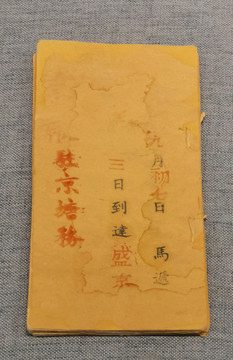 九月初七日 馬遞
三日到達盛京
駐京塘務